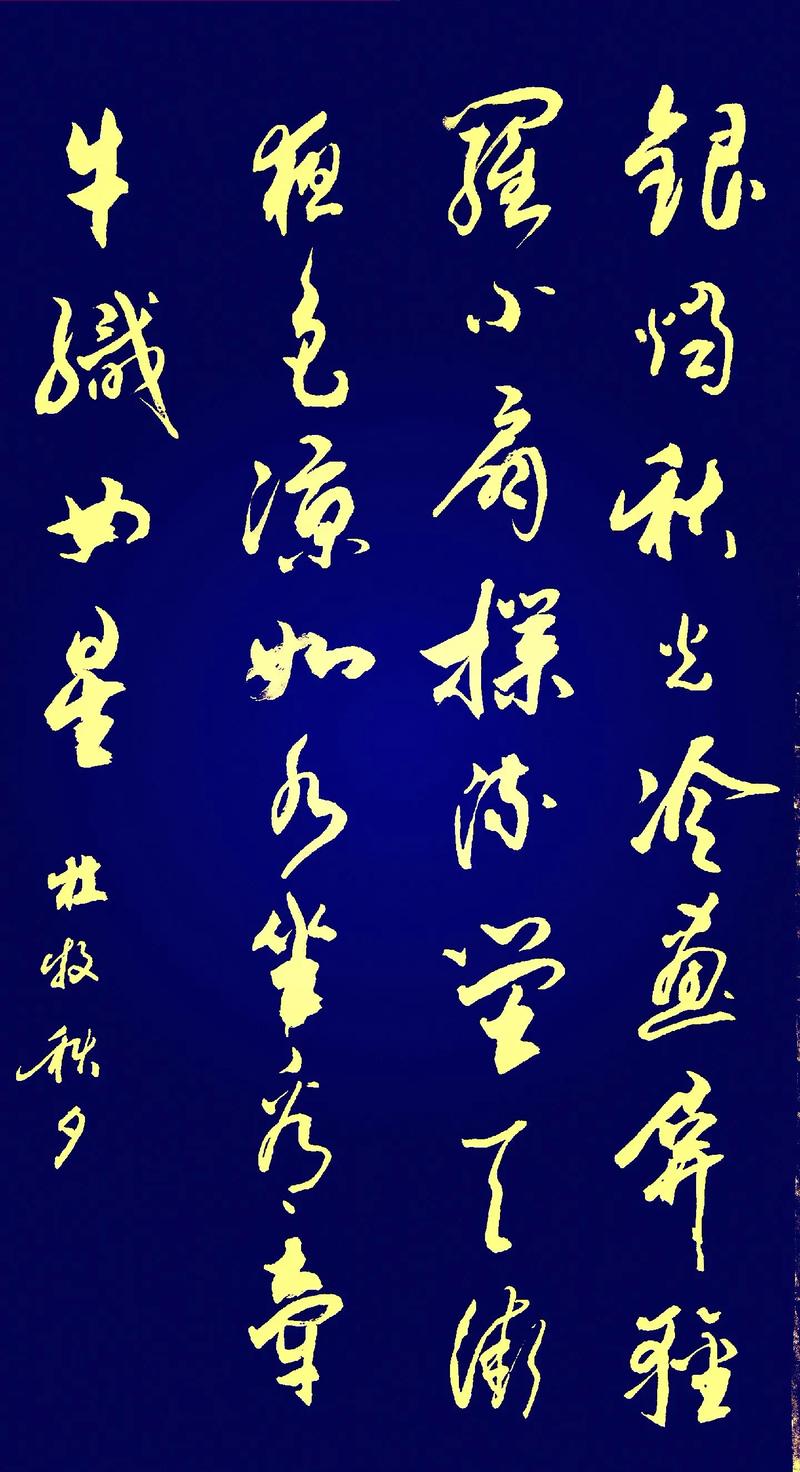 銀燭秋光冷畫屏輕
羅小扇撲流螢天街
夜色涼如水坐看牽
牛織女星 杜牧秋夕